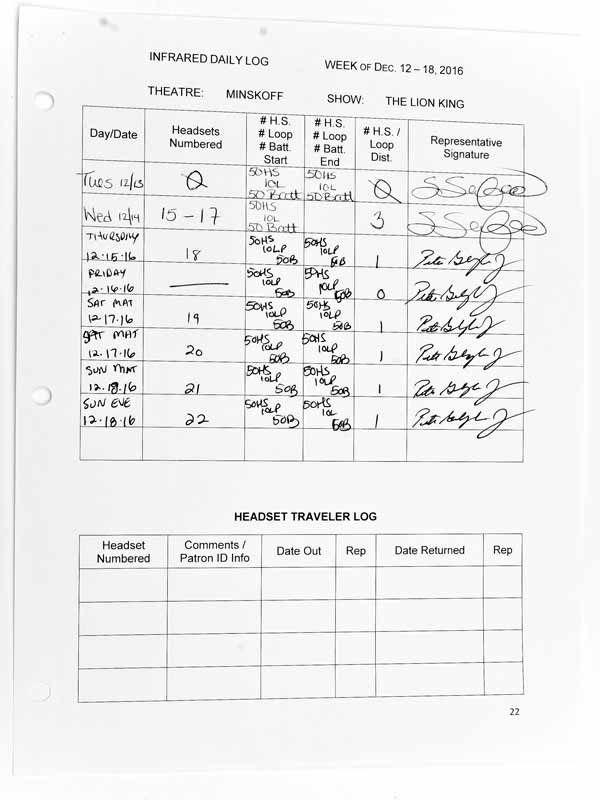 INFRARED DAILY LOG WEEK OF DEC. 12 – 18, 2016
THEATRE: MINSKOFF SHOW: THE LION KING
Day/Date
Headsets
Numbered
# H.S.
# Loop
# Batt.
Start
# H.S.
# Loop
# Batt.
End
# H.S. /
Loop
Dist.
Representative
Signature
Tues 12/13 0 50HS 10L 50Batt 50HS 10L 50Batt 0
Wed 12/14 15-17 50HS 10L 50Batt 3
THURSDAY 12.15.16 18 50HS 10LP 50B 50HS 10LP 50B 1
FRIDAY 12.16.16 50HS 10LP 50B 50HS 10LP 50B 0
SAT MAT 12.17.16 19 50HS 10LP 50B 50HS 10LP 50B 1
SAT MAT 12.17.16 20 50HS 10LP 50B 50HS 10LP 50B 1
SUN MAT 12.18.16 21 50HS 10LP 50B 50HS 10LP 50B 1
SUN EVE 12.18.16 22 50HS 10LP 50B 50HS 10L 50B 1
HEADSET TRAVELER LOG
Headset
Numbered
Comments /
Patron ID Info
Date Out
Rep
Date Returned
Rep
22